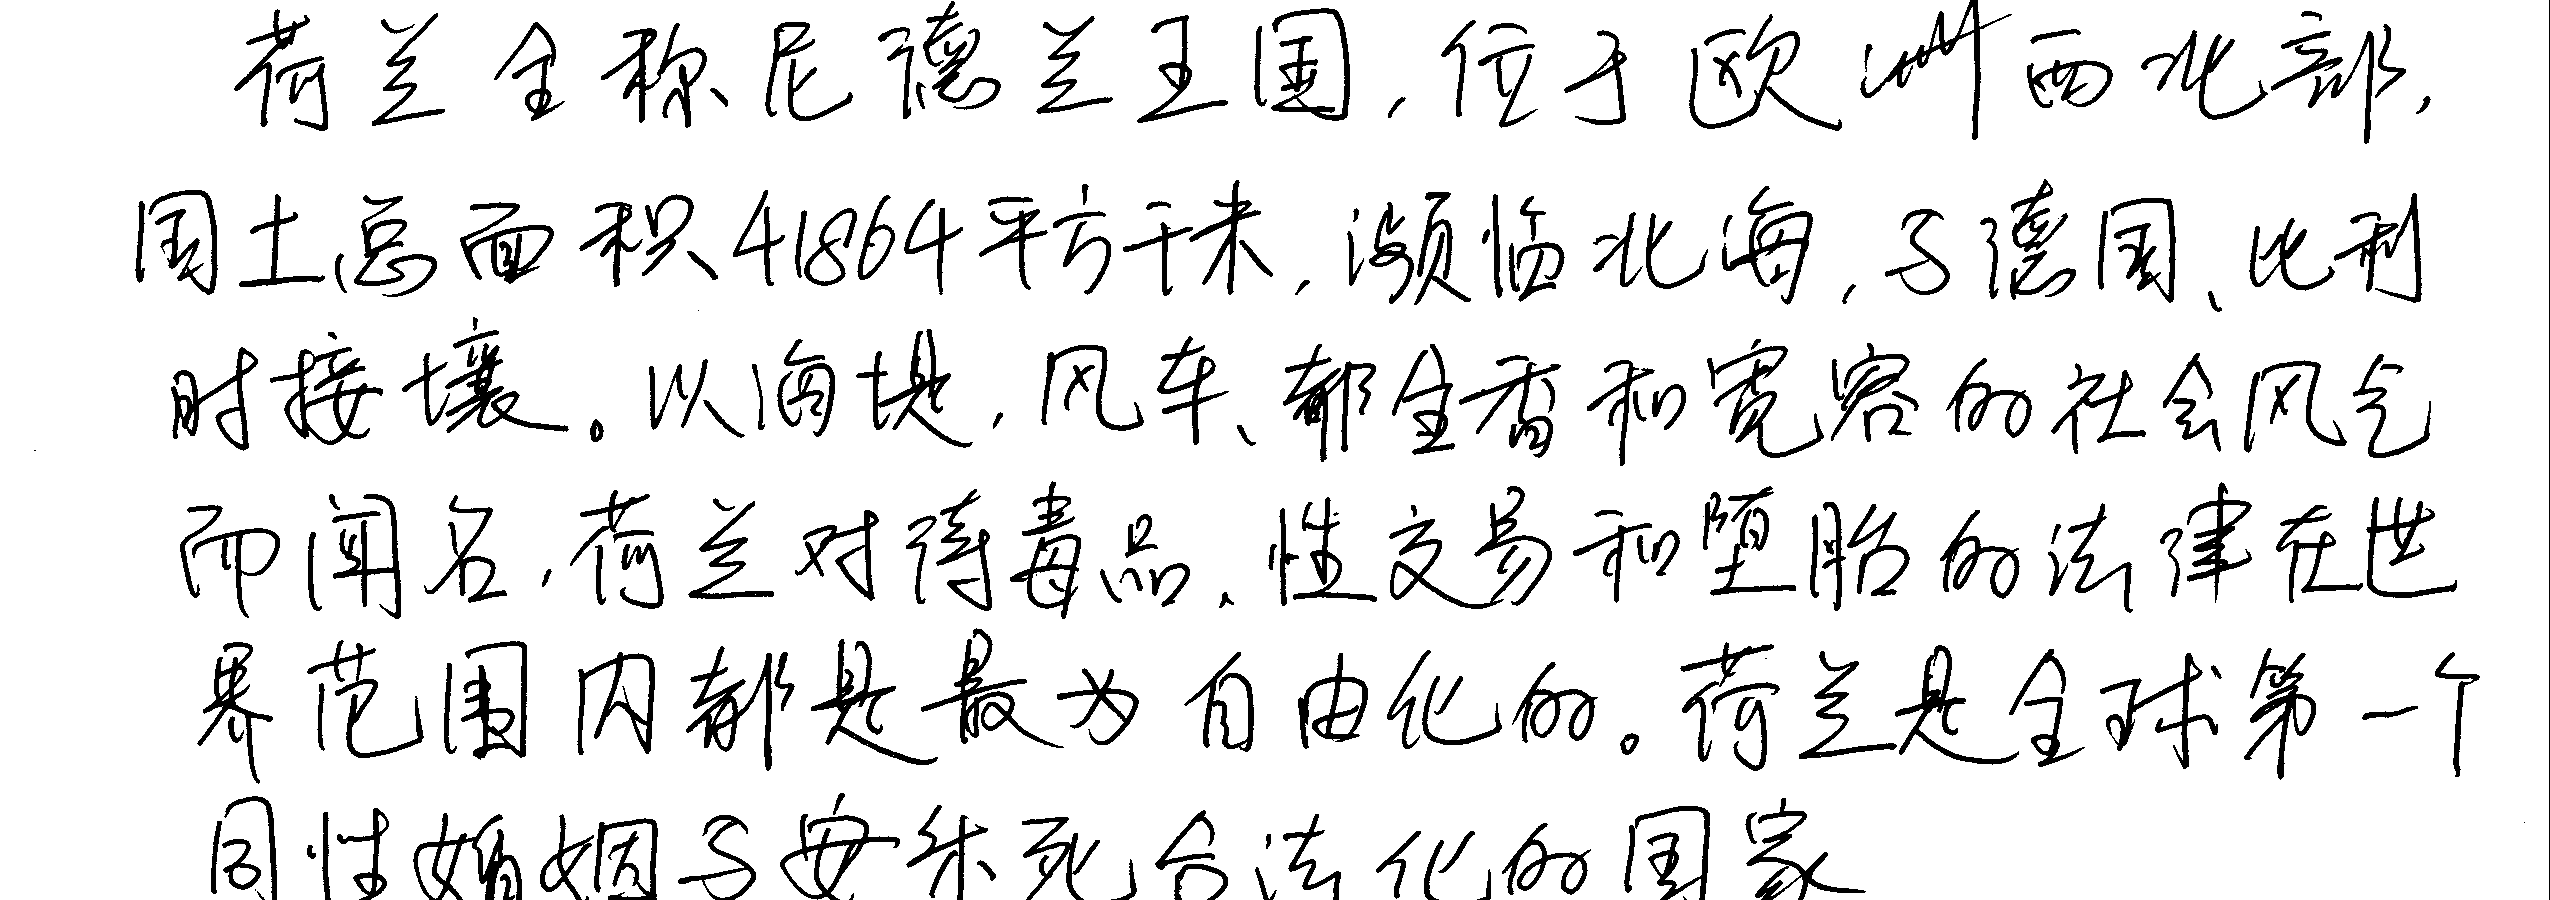 荷兰全称尼德兰王国,位于欧洲西北部,
国土总面积41864平方千米,濒临北海,与德国、比利
时接壤。以海堤,风车、郁金香和宽容的社会风气
而闻名,荷兰对待毒品、性交易和堕胎的法律在世
界范围内都是最为自由化的。荷兰是全球第一个
同性婚姻与安乐死合法化的国家